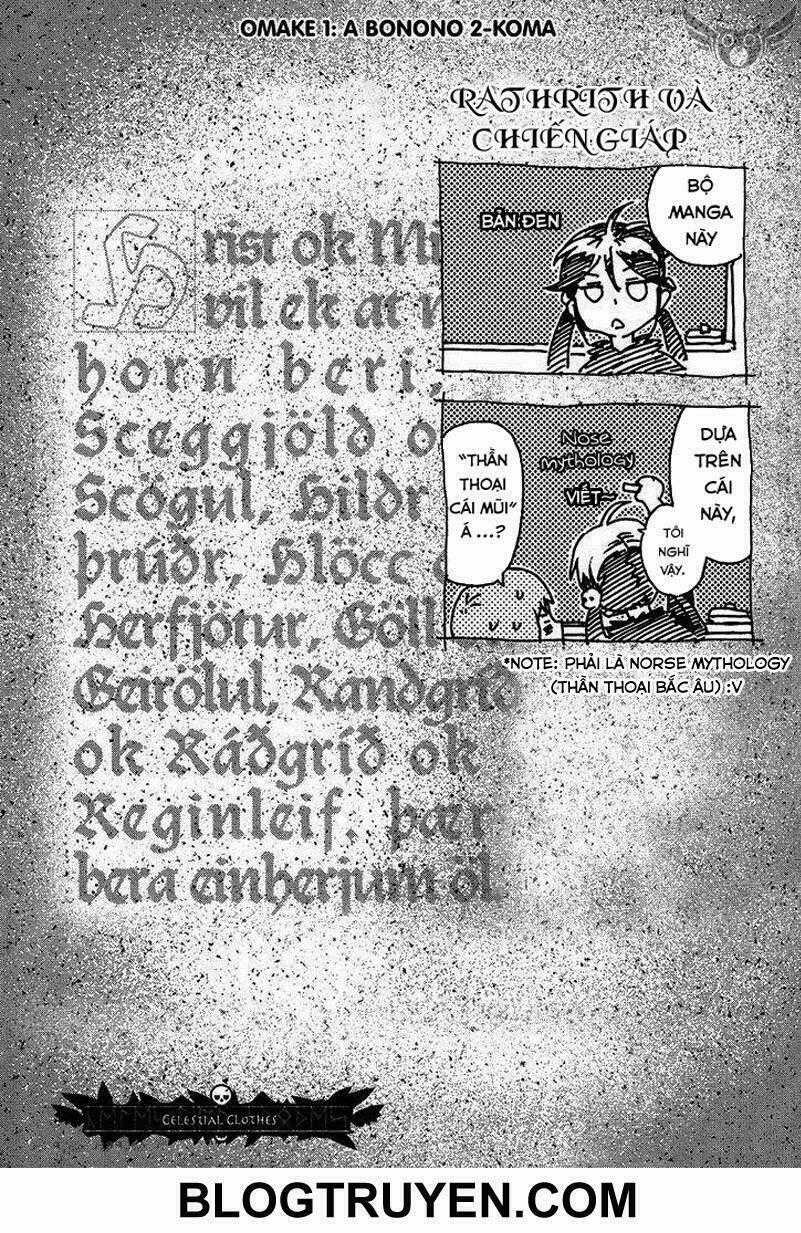 OMAKE 1: A BONONO 2-KOMA
RATHRITH VÀ
CHIẾN GIÁP
BỘ
MANGA
NÀY
BẢN ĐEN
DỰA
TRÊN
CÁI
NÀY,
Nose
mythology
VIẾT~
TÔI
NGHĨ
VẬY.
"THẦN
THOẠI
CÁI MŨI"
Á ...?
*NOTE: PHẢI LÀ NORSE MYTHOLOGY
(THẦN THOẠI BẮC ÂU) :V
Hrist ok Mi
vil ek at
horn beri,
Sceggjölð o
Scögul, Hildr
þrúðr, Hlöcc
Herfjötur, Göll
Geirölul, Randgríð
ok Ráðgríð ok
Reginleif. þær
bera einherjum öl
CELESTIAL CLOTHES
BLOGTRUYEN.COM